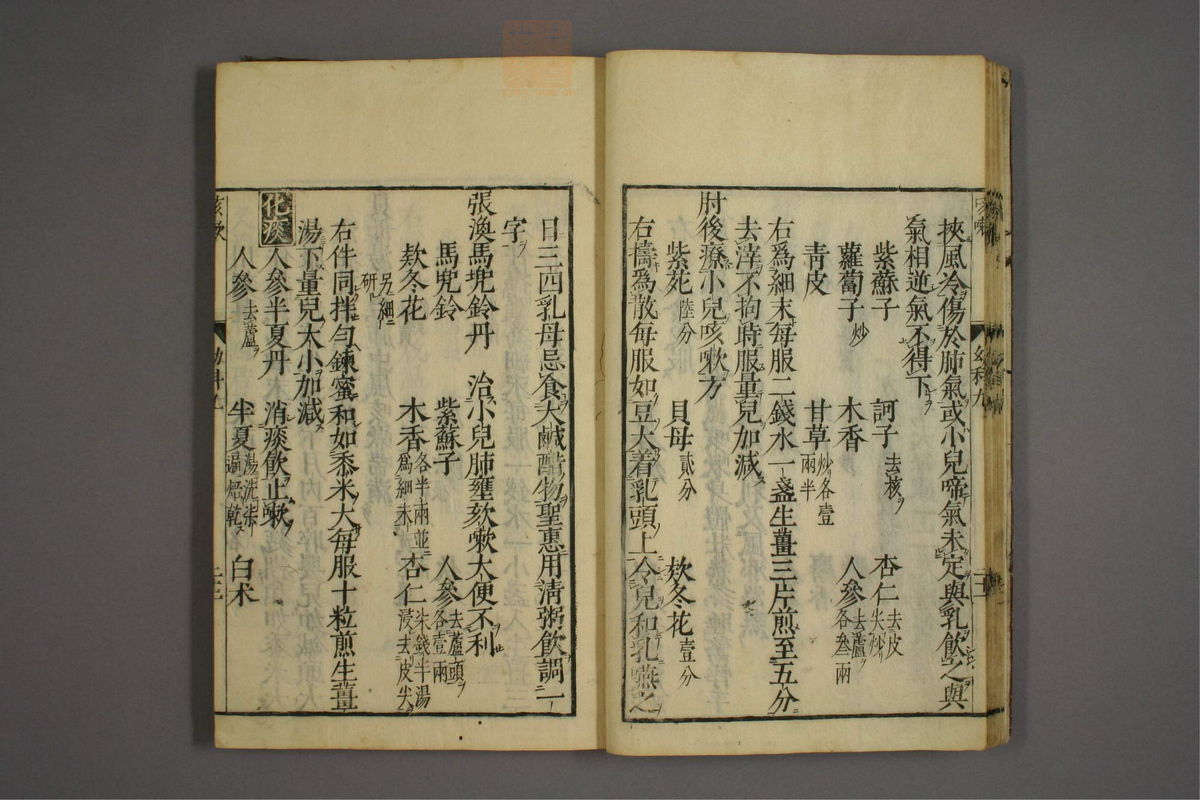 挾風冷傷於肺氣或小兒啼氣未定與乳飲之與
氣相逆氣不得下
紫蘇子 訶子去核 杏仁去皮尖炒
蘿蔔子炒 木香 人參去蘆各叄兩
青皮 甘草炒各壹兩半
右爲細末每服二錢水一盞生薑三片煎至五分
去滓不拘時服量兒加減
肘後療小兒咳嗽方
紫菀陸分 貝母貳分 欵冬花壹分
右擣爲散每服如豆大着乳頭上令兒和乳嚥之
日三四乳母忌食大鹹醋物聖惠用淸粥飲調一
字
張渙馬兜鈴丹 治小兒肺壅欬嗽大便不利
馬兜鈴 紫蘇子 人參去蘆頭各壹兩
欵冬花 木香各半兩並爲細末 杏仁柒錢半湯浸去皮尖
另細研
右件同拌勻鍊蜜和如黍米大每服十粒煎生薑
湯下量兒大小加減
化痰 人參半夏丹 消痰飲止嗽
人參去蘆 半夏湯洗柒遍焙乾 白朮